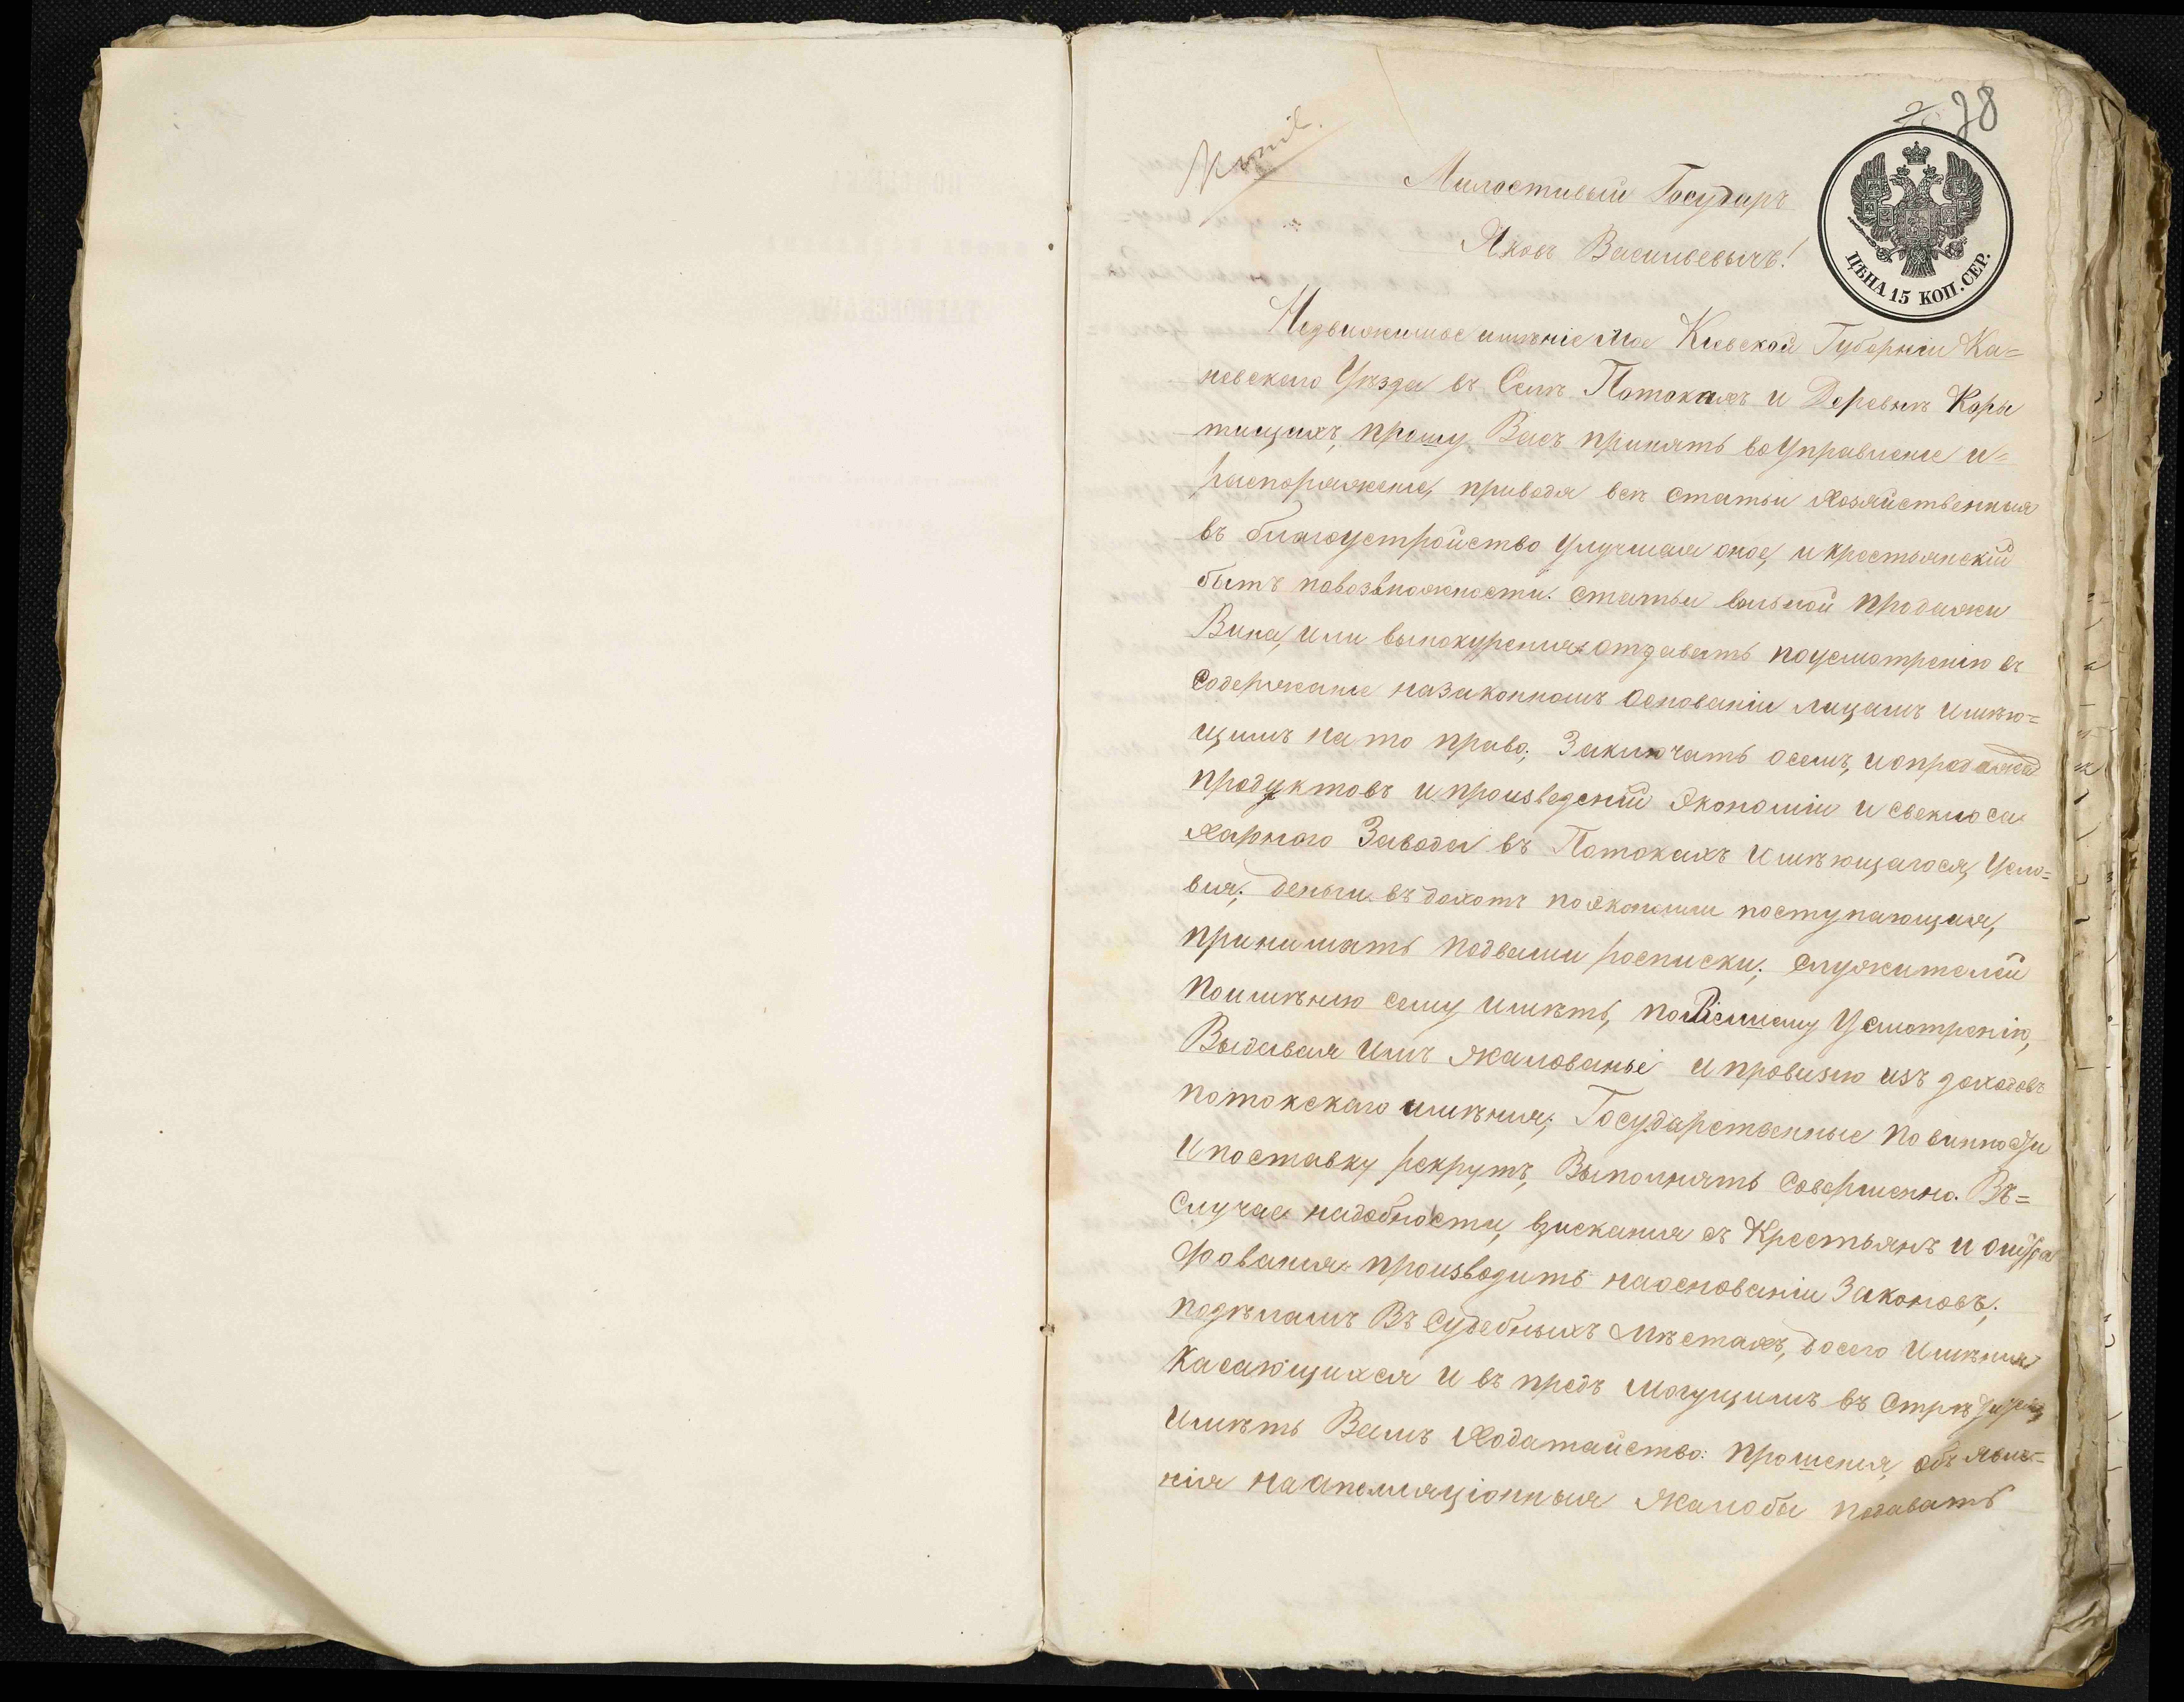 28
Копія.
Милостивый Государь
Яковъ Васильевычъ!
ЦѢНА 15 КОП. СЕР.
Недвижимые имѣніе Мое Кіевской Губерніи Ка=
невскаго Уѣзда въ Селѣ Потокахъ и Деревнѣ Коры
тищахъ, прошу Васъ принять во Управленіе и=
распоряженіе, приводя всѣ статьи хозяйственныя
въ благоустройство улучшая оное, и крестьянскій
бытъ повозвможности. статьи вольной продажи
Вина, или выпокуренія отдавать поусмотренію въ
Содержаніе назаконномъ Основаніи лицамъ имѣю=
щимъ на то право; Заключать осемъ, и опродажѣ
продуктовъ и произведеній Экономіи и свеклоса
харнаго Завода въ Потокахъ имѣющагося, Усло=
вия; деньги въ доходъ поэкономіи поступающия,
принимать подваши росписки; служителей
поимѣнію сему имѣть, по Вашему Усмотренію,
Выдавая имъ жалованье и провизію изъ доходовъ
потокскаго имѣния; Государственные повинности
и поставку рекрутъ, Выполнять Совершенно. Въ=
Случае надобности, взискания съ Крестьянъ и оштра
фования производить наоснованіи Законовъ;
подѣламъ Въ Судебныхъ Мѣстахъ, досего Имѣния
Касающихся и въ предъ могущимъ въ
имѣть Вамъ Ходатайство: прошения, объявле=
нія на апелляціонныя жалобы подавать